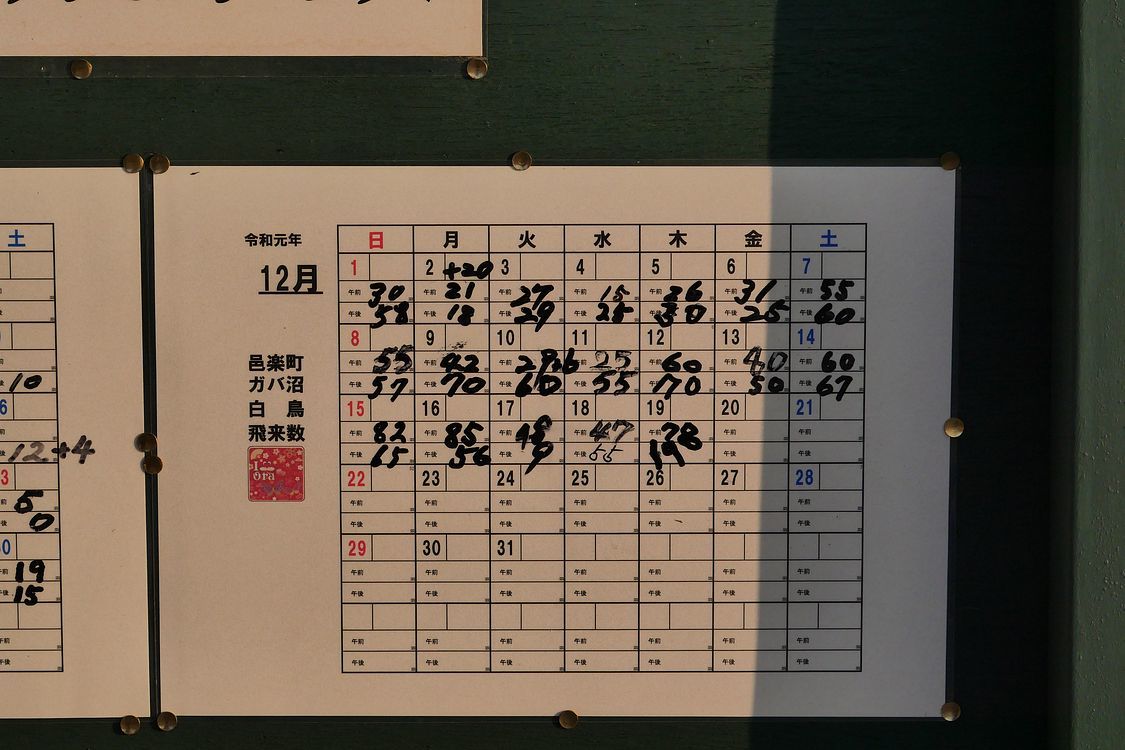 土
10
12+4
5
0
19
15
令和元年
12月
邑楽町
ガバ沼
白 鳥
飛来数
日 月 火 水 木 金 土
1 2 +20 3 4 5 6 7
午前 30 午前 21 午前 27 午前 15 午前 26 午前 31 午前 55
午後 58 午後 18 午後 29 午後 25 午後 30 午後 25 午後 60
8 9 10 11 12 13 14
午前 55 午前 42 午前 午前 25 午前 60 午前 40 午前 60
午後 57 午後 70 午後 60 午後 55 午後 70 午後 50 午後 67
15 16 17 18 19 20 21
午前 82 午前 85 午前 48 午前 47 午前 78 午前 午前
午後 65 午後 56 午後 9 午後 55 午後 19 午後 午後
22 23 24 25 26 27 28
午前 午前 午前 午前 午前 午前 午前
午後 午後 午後 午後 午後 午後 午後
29 30 31
午前 午前 午前 午前 午前 午前 午前
午後 午後 午後 午後 午後 午後 午後
午前 午前 午前 午前 午前 午前 午前
午後 午後 午後 午後 午後 午後 午後